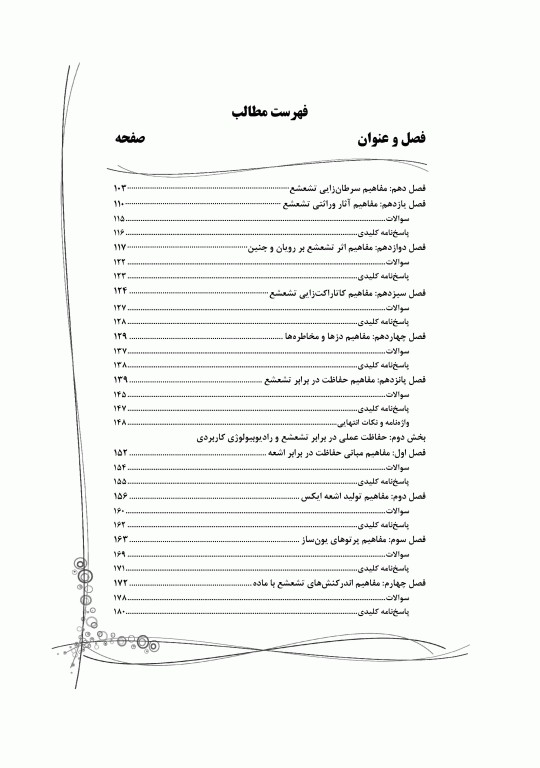 فهرست مطالب
فصل و عنوان صفحه
فصل دهم: مفاهیم سرطان‌زایی تشعشع ۱۰۳
فصل یازدهم: مفاهیم آثار وراثتی تشعشع ۱۱۰
سوالات ۱۱۵
پاسخ‌نامه کلیدی ۱۱۶
فصل دوازدهم: مفاهیم اثر تشعشع بر رویان و جنین ۱۱۷
سوالات ۱۲۲
پاسخ‌نامه کلیدی ۱۲۳
فصل سیزدهم: مفاهیم کاتاراکت‌زایی تشعشع ۱۲۴
سوالات ۱۲۷
پاسخ‌نامه کلیدی ۱۲۸
فصل چهاردهم: مفاهیم دزها و مخاطره‌ها ۱۲۹
سوالات ۱۳۷
پاسخ‌نامه کلیدی ۱۳۸
فصل پانزدهم: مفاهیم حفاظت در برابر تشعشع ۱۳۹
سوالات ۱۴۵
پاسخ‌نامه کلیدی ۱۴۷
واژه‌نامه و نکات انتهایی ۱۴۸
بخش دوم: حفاظت عملی در برابر تشعشع و رادیوبیولوژی کاربردی
فصل اول: مفاهیم مبانی حفاظت در برابر اشعه ۱۵۲
سوالات ۱۵۴
پاسخ‌نامه کلیدی ۱۵۵
فصل دوم: مفاهیم تولید اشعه ایکس ۱۵۶
سوالات ۱۶۰
پاسخ‌نامه کلیدی ۱۶۲
فصل سوم: مفاهیم پرتوهای یون‌ساز ۱۶۳
سوالات ۱۶۹
پاسخ‌نامه کلیدی ۱۷۱
فصل چهارم: مفاهیم اندرکنش‌های تشعشع با ماده ۱۷۲
سوالات ۱۷۸
پاسخ‌نامه کلیدی ۱۸۰